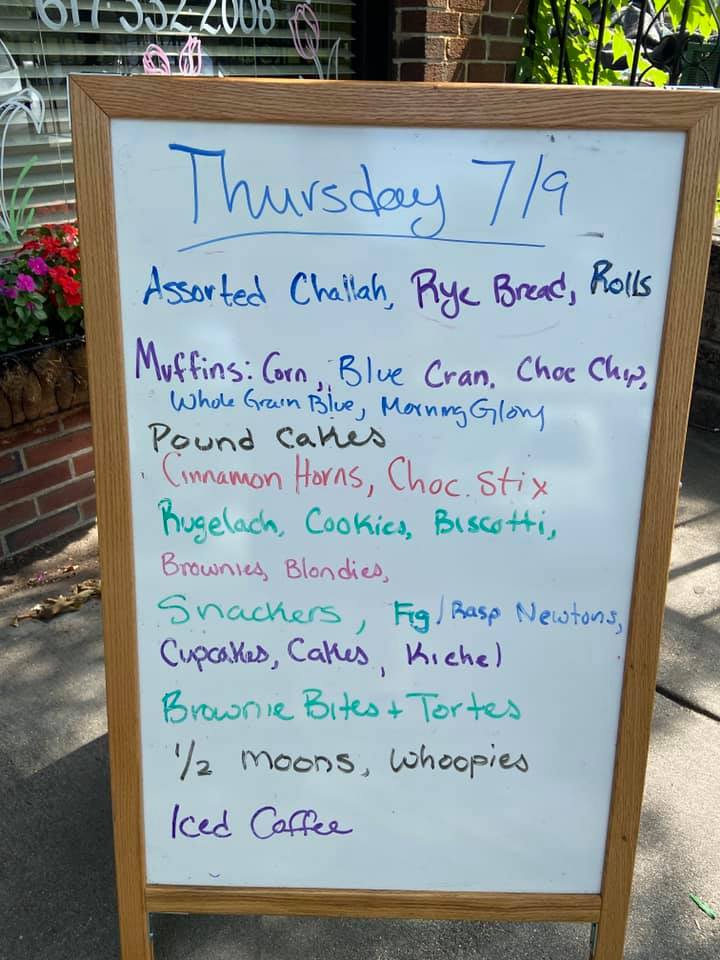 617 332 2008
Thursday 7/9
Assorted Challah, Rye Bread, Rolls
Muffins: Corn, Blue Cran, Choc Chip,
Whole Grain Blue, Morning Glory
Pound Cakes
Cinnamon Horns, Choc. Stix
Rugelach, Cookies, Biscotti,
Brownies, Blondies,
Snackers, Fig/Rasp Newtons,
Cupcakes, Cakes, Kichel
Brownie Bites + Tortes
1/2 moons, Whoopies
Iced Coffee